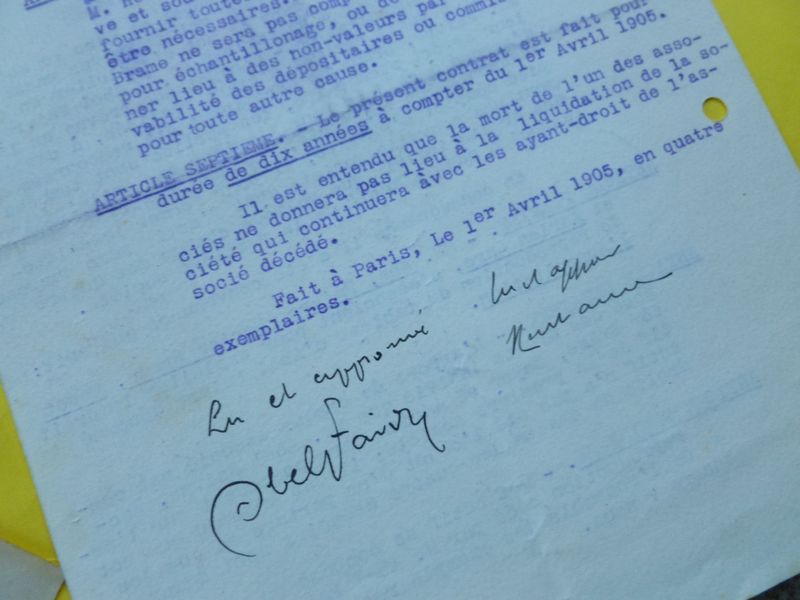 M.
ve et sou
fournir toute
être nécessaires.
Brame ne sera pas comp
pour échantillonage, ou de
ner lieu à des non-valeurs par
vabilité des dépositaires ou commi
pour toute autre cause.
ARTICLE SEPTIEME. - Le présent contrat est fait pour
durée de dix années à compter du 1er Avril 1905.
Il est entendu que la mort de l'un des asso-
ciés ne donnera pas lieu à la liquidation de la so-
ciété qui continuera avec les ayant-droit de l'as-
socié décédé.
Fait à Paris, Le 1er Avril 1905, en quatre
exemplaires.
Lu et approuvé
Lu et approuvé
Abel Faivre